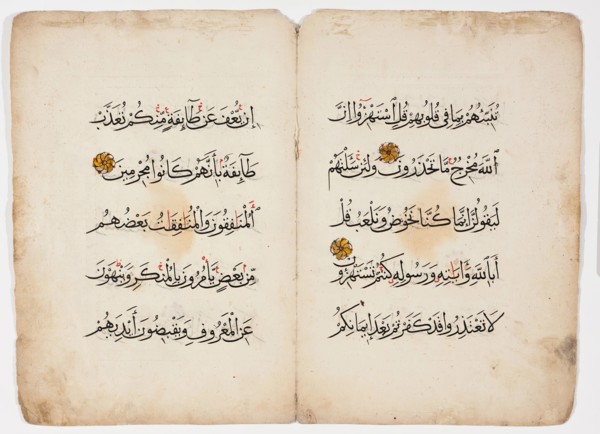 تُنَبِّئُهُمْ بِمَا فِى قُلُوبِهِمْ قُلِ ٱسْتَهْزِءُوٓا۟ إِنَّ
ٱللَّهَ مُخْرِجٌ مَّا تَحْذَرُونَ وَلَئِن سَأَلْتَهُمْ
لَيَقُولُنَّ إِنَّمَا كُنَّا نَخُوضُ وَنَلْعَبُ قُلْ
أَبِٱللَّهِ وَءَايَـٰتِهِ وَرَسُولِهِ كُنتُمْ تَسْتَهْزِءُونَ
لَا تَعْتَذِرُوا قَدْ كَفَرْتُمْ بَعْدَ إِيمَانِكُمْ
إِن نَّعْفُ عَن طَآئِفَةٍ مِّنكُمْ نُعَذِّبْ
طَآئِفَةً بِأَنَّهُمْ كَانُوا مُجْرِمِينَ
ٱلْمُنَـٰفِقُونَ وَٱلْمُنَـٰفِقَـٰتُ بَعْضُهُم
مِّنۢ بَعْضٍ يَأْمُرُونَ بِٱلْمُنكَرِ وَيَنْهَوْنَ
عَنِ ٱلْمَعْرُوفِ وَيَقْبِضُونَ أَيْدِيَهُمْ